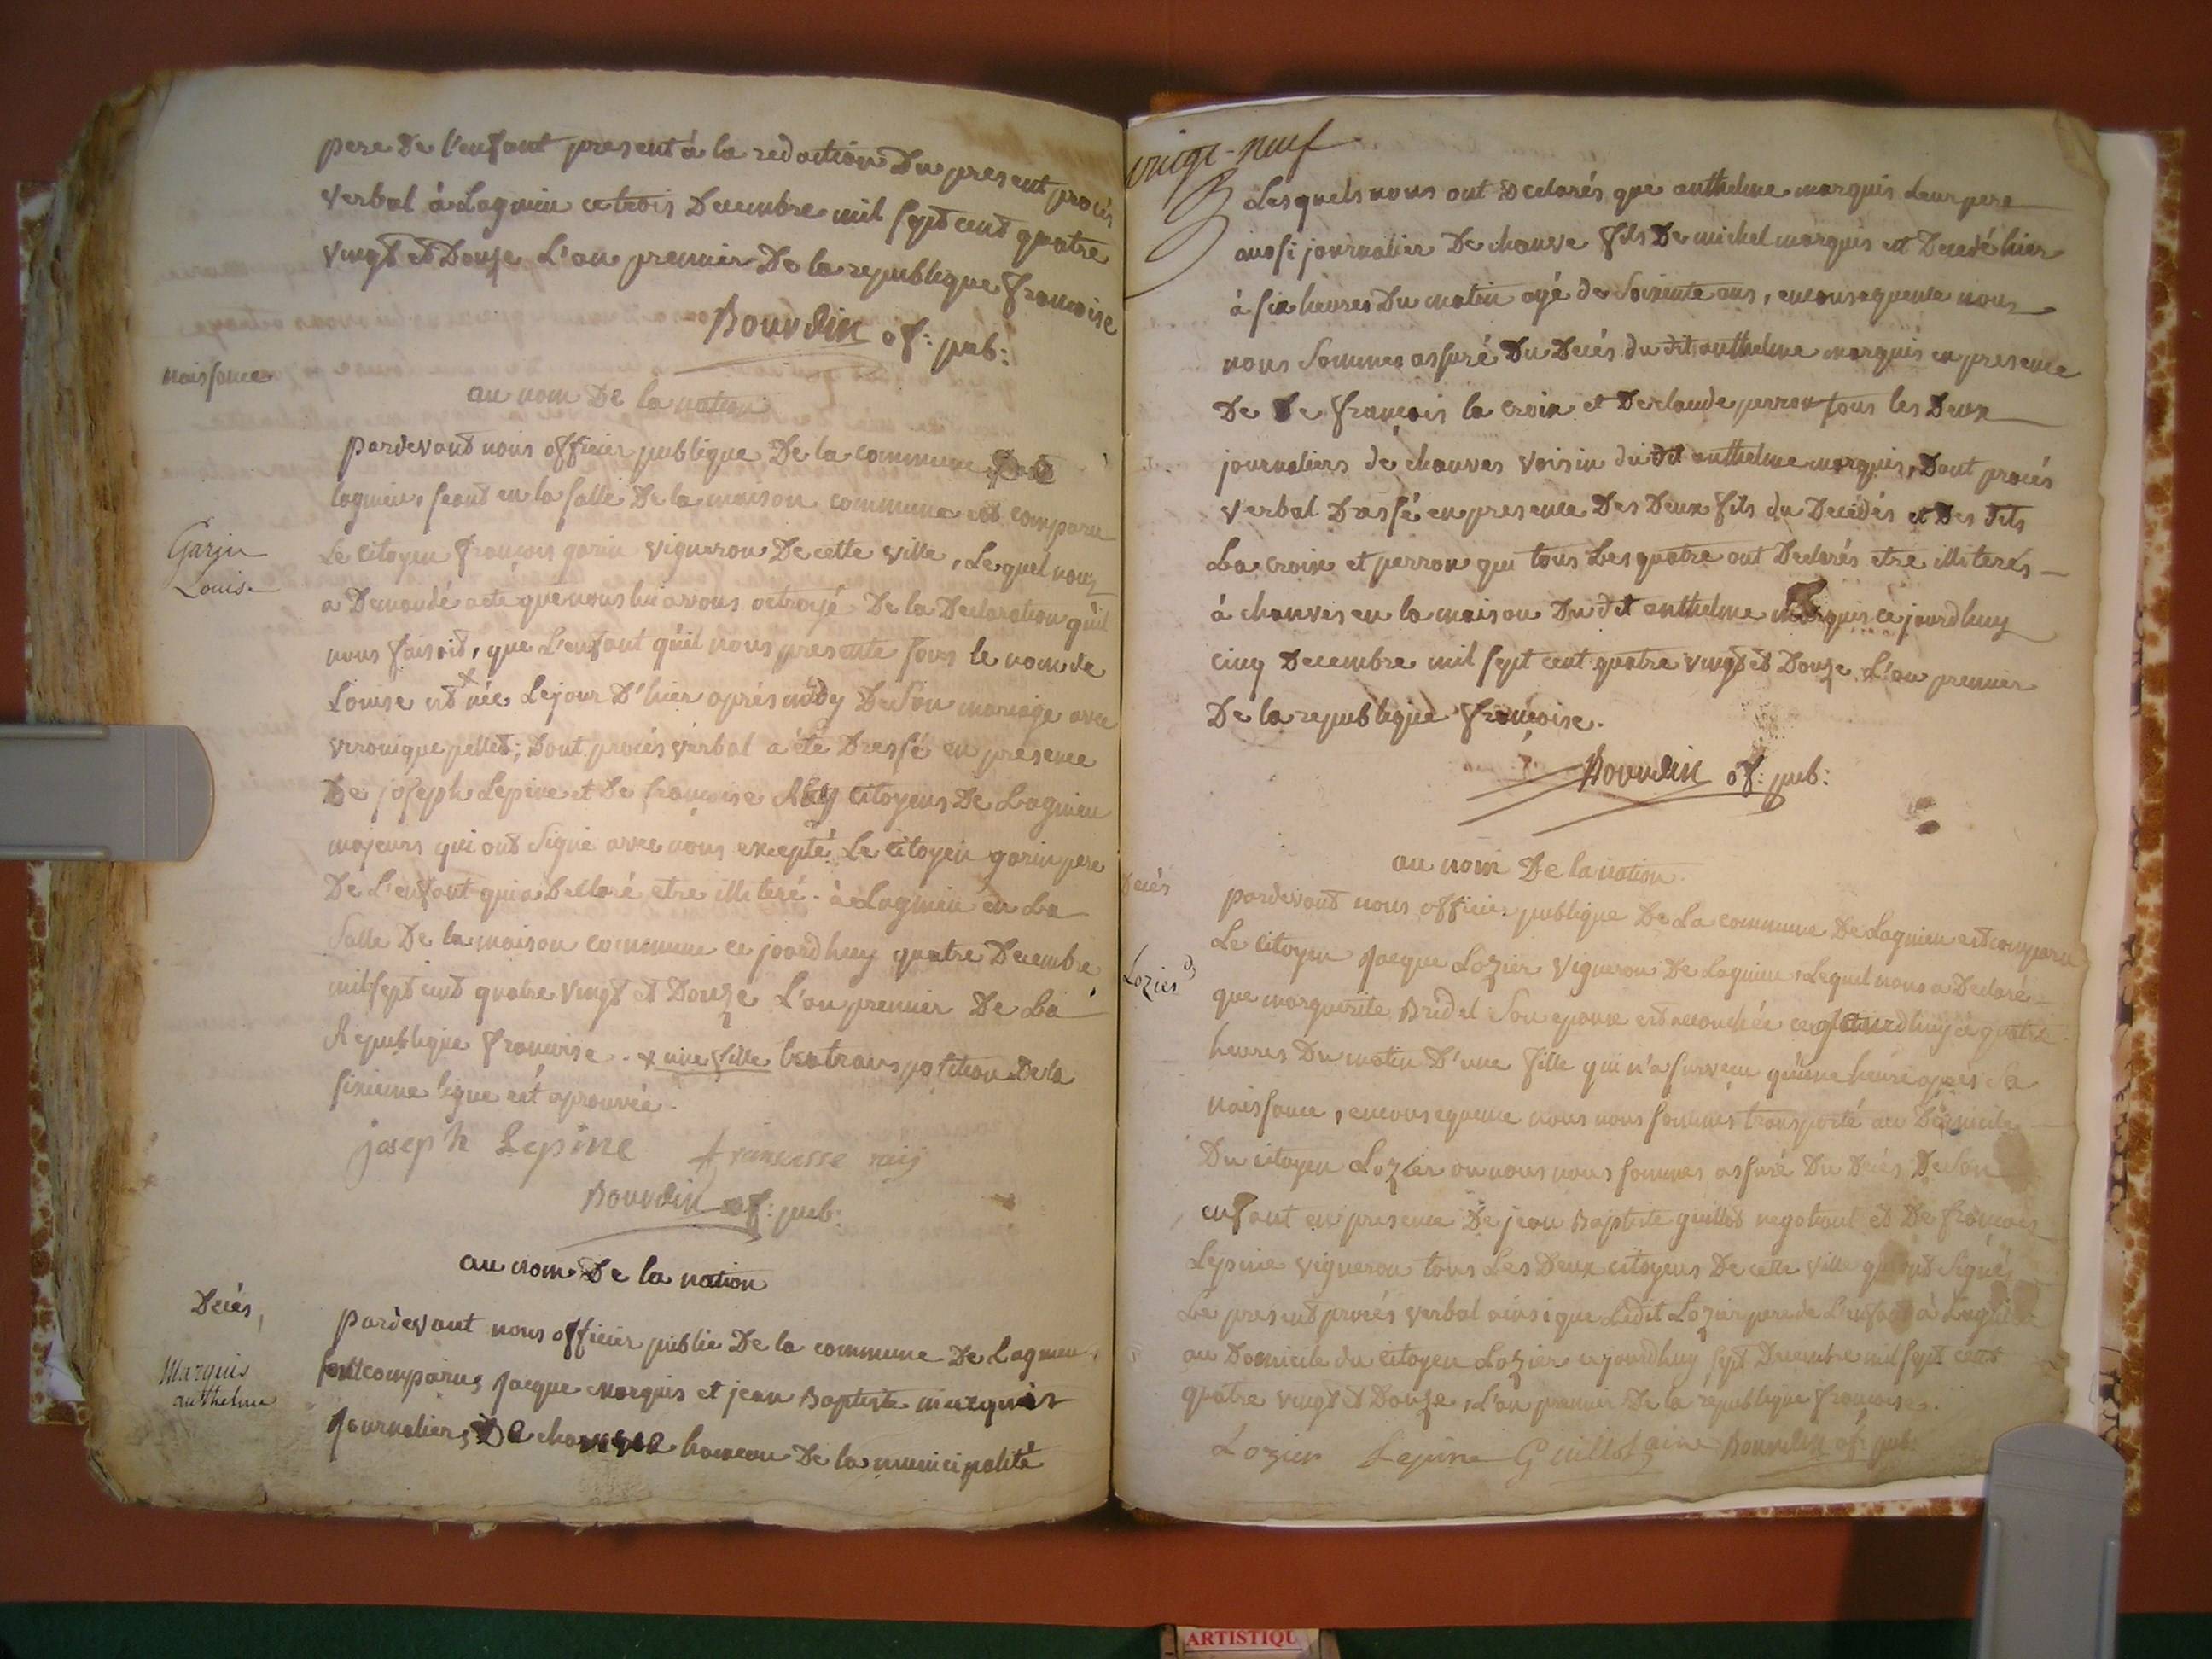 pere De l'enfant present à la redaction Du present procés
verbal à Lagnieu ce trois Decembre mil sept cent quatre
vingt et Douze L'an premier De la republique francoise
Bourdin of: pub:
naissance
au nom De la nation
Garin
Louise
pardevant nous officier publique De la commune
lagnieu, seant en la salle De la maison commune est comparu
Le citoyen françois garin vigneron De cette ville, Lequel nous
a Demandé acte que nous lui avons octroyé De la Declaration qu'il
nous faisoit, que L'enfant qu'il nous presente sous le nom de
Louise est + née Lejour D'hier aprés midy De son mariage avec
veronique pellet; Dont procés verbal a été Dressé en presence
De joseph Lepine et De françoise Rey citoyens De Lagnieu
majeurs qui ont signé avec nous excepté Le citoyen garin pere
De L'enfant qui a Declaré etre illiteré. à Lagnieu en La
salle De la maison commune ce jourdhuy quatre Decembre
mil sept cent quatre vingt et Douze L'an premier De La
Republique francoise. + une fille la transposition De la
sixieme ligne est aprouvée.
joseph Lepine francesse raij
Bourdin of: pub:
au nom De la nation
Decés,
Marquis
anthelme
pardevant nous officier public De la commune De Lagnieu,
sont comparus Jacque marquis et jean Baptiste marquis
Journaliers De chanve hameau De la municipalité
vingt-neuf
Lesquels nous ont Declarés que anthelme marquis Leur pere
aussi journalier De chanve fils De michel marquis est Decedé hier
à six heures Du matin agé de soixente ans, en consequence nous
nous sommes assuré Du Decés du dit anthelme marquis en presence
De De françois la croix et De claude perron tous les Deux
journaliers de chanves voisin du dit anthelme marquis, Dont procés
verbal Dressé en presence Des Deux fils du Decédés et Des dits
La croix et perron qui tous Les quatre ont Declarés etre illiterés
à chanves en la maison Du dit anthelme marquis ce jourdhuy
cinq Decembre mil sept cent quatre vingt et Douze L'an premier
De la republique françoise.
Bourdin of: pub:
au nom De la nation.
Decés
Lozier
pardevant nous officier publique De La commune De Lagnieu est comparu
Le citoyen Jacque Lozier vigneron De Lagnieu, Lequel nous a Declaré
que marguerite Bridel son epouse est accouchée ce jourdhuy à quatre
heures Du matin D'une fille qui n'a survecu qu'une heure aprés sa
naissance, en consequence nous nous sommes transporté au Domicile
Du citoyen Lozier ou nous nous sommes assuré Du Decés De son
enfant en presence De jean Baptiste guillot negotiant et De françois
Lepine vigneron tous Les Deux citoyens De cette ville qui ont signé
Le present procés verbal ainsi que Ledit Lozier pere de L'enfant à Lagnieu
au Domicile du citoyen Lozier ce jourdhuy sept Decembre mil sept cent
quatre vingt et Douze, L'an premier De la republique françoise.
Lozier Lepine Guillot aine Bourdin of: pub:
ARTISTIQU